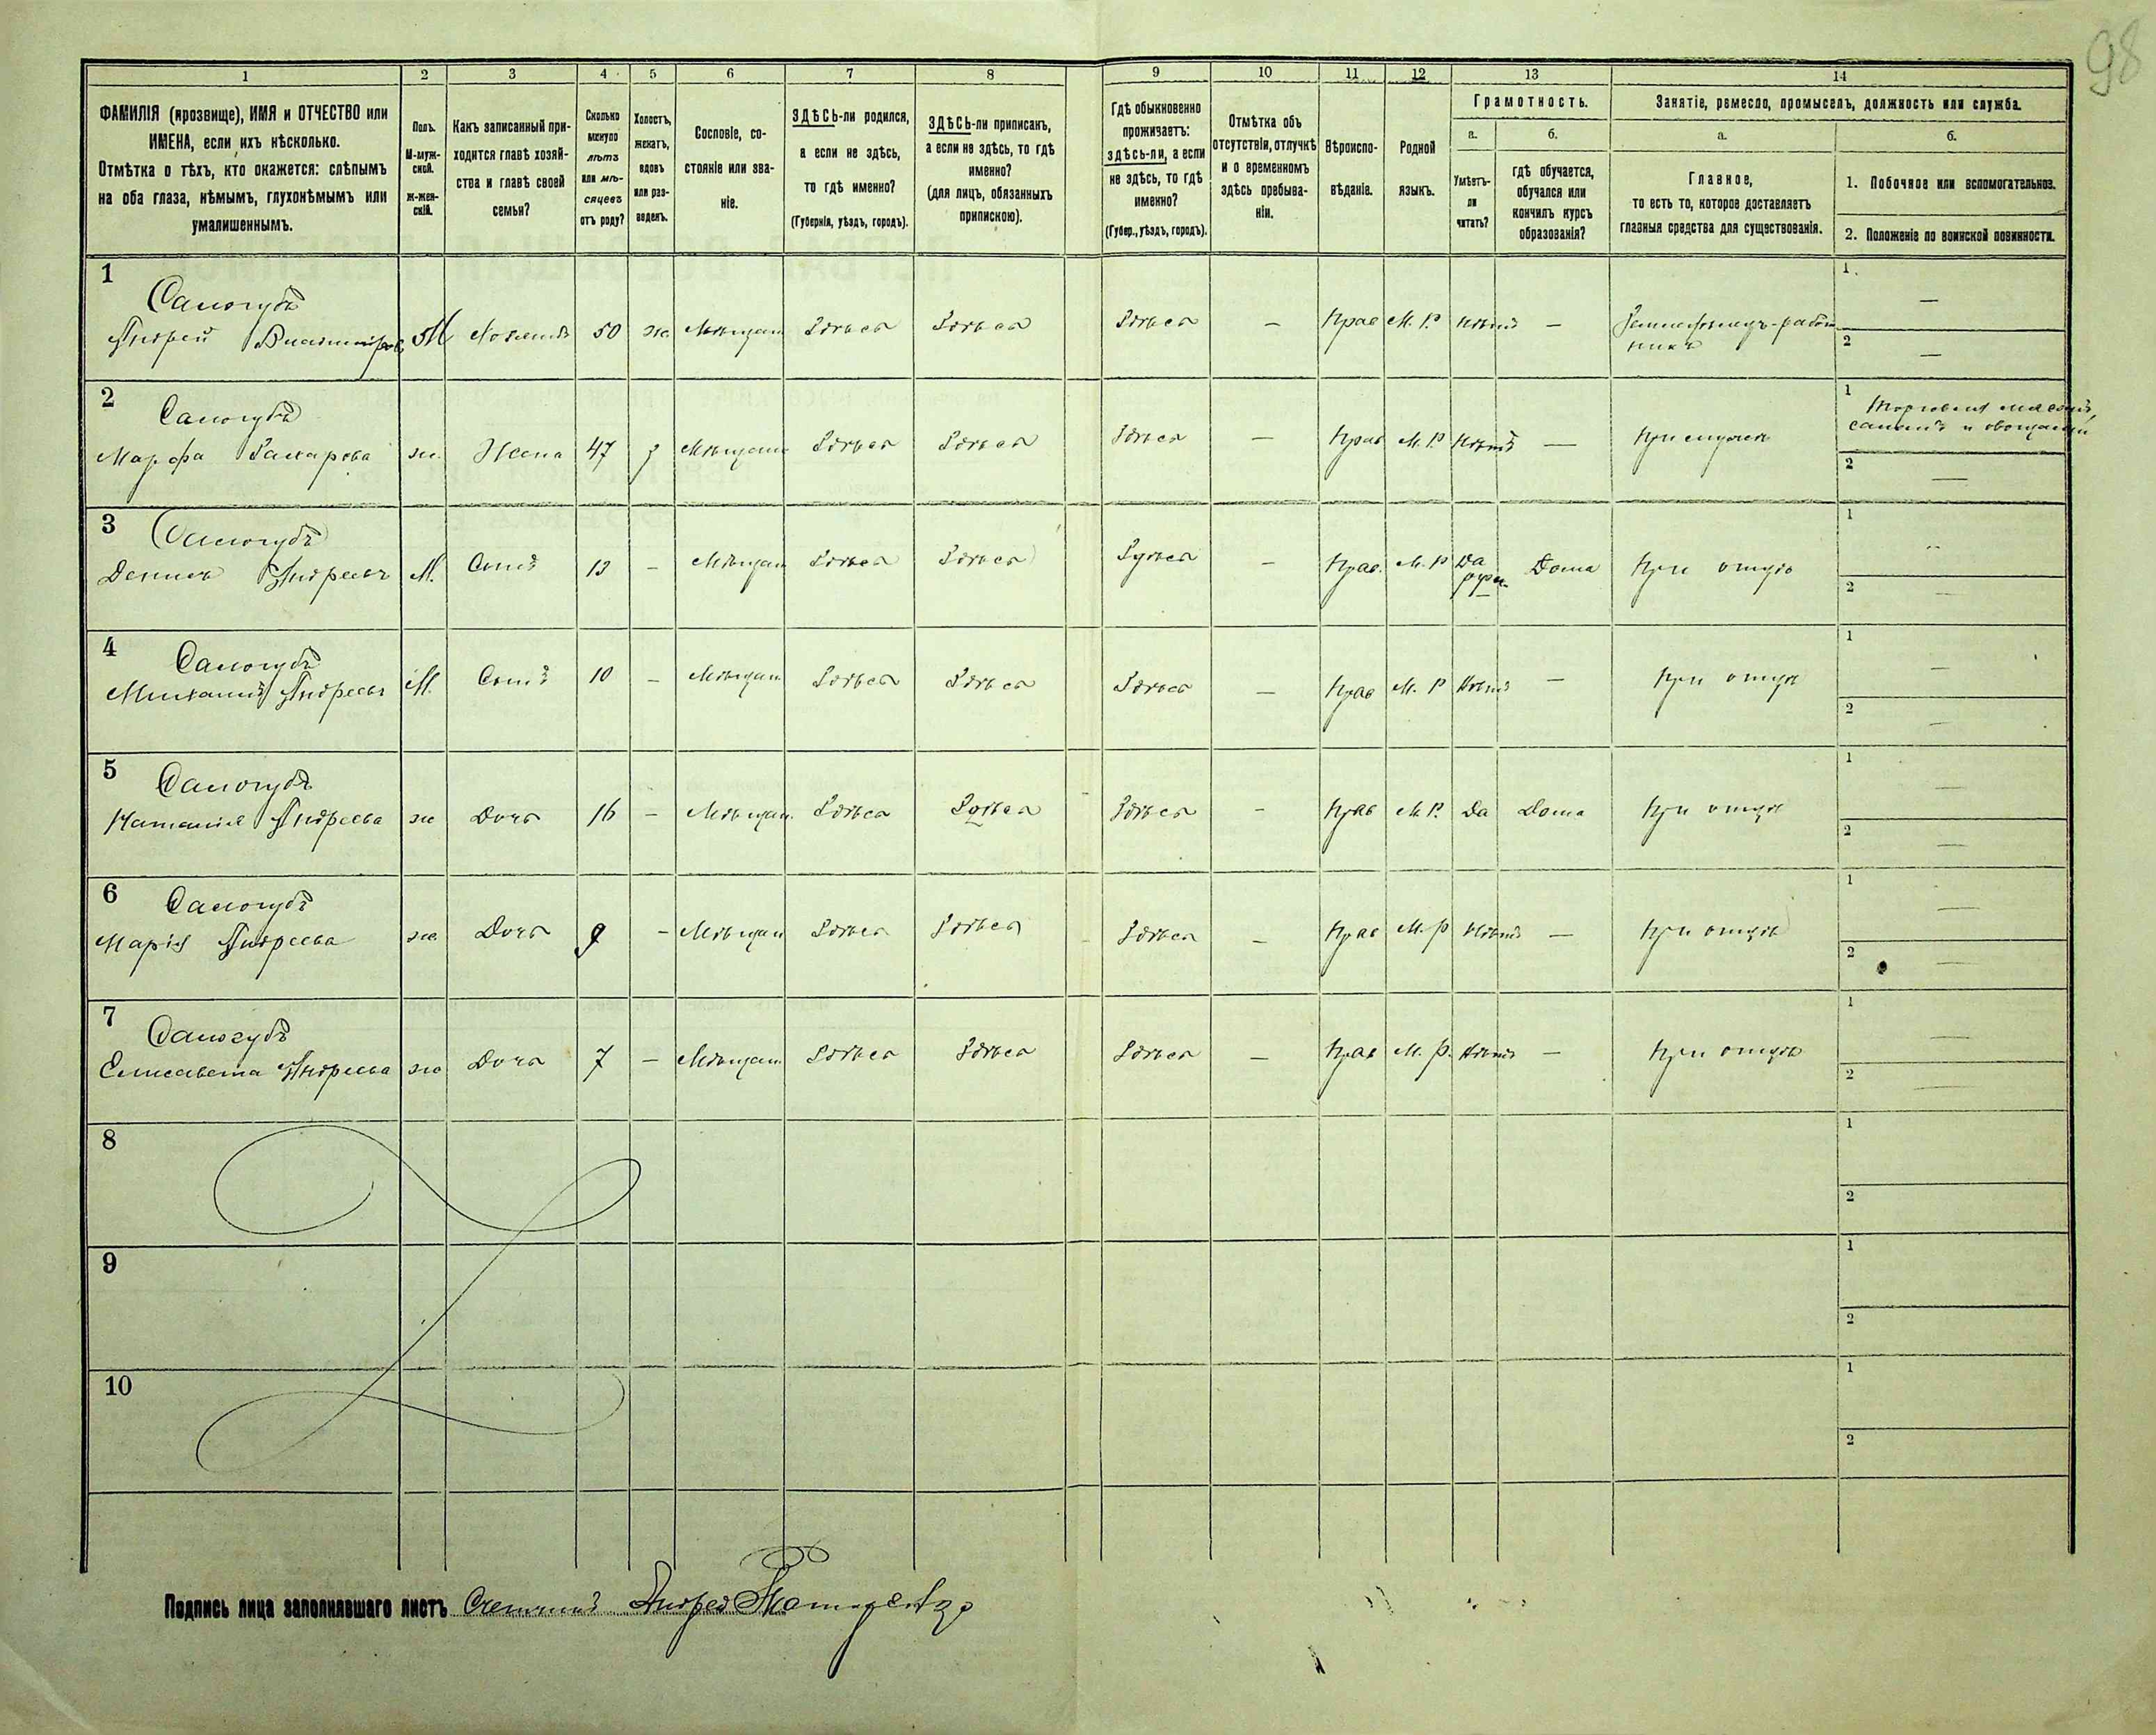 98
1 2 3 4 5 6 7 8 9 10 11 12 13 14
ФАМИЛІЯ (прозвище), ИМЯ и ОТЧЕСТВО или
ИМЕНА, если ихъ нѣсколько.
Отмѣтка о тѣхъ, кто окажется: слѣпымъ
на оба глаза, нѣмымъ, глухонѣмымъ или
умалишеннымъ.
Полъ.
М-муж-
ской.
ж-жен-
скій.
Какъ записанный при-
ходится главѣ хозяй-
ства и главѣ своей
семьи?
Сколько
минуло
лѣтъ
или мѣ-
сяцевъ
отъ роду?
Холостъ,
женатъ,
вдовъ
или раз-
веденъ.
Сословіе, со-
стояніе или зва-
ніе.
ЗДѢСЬ-ли родился,
а если не здѣсь,
то гдѣ именно?
(Губернія, уѣздъ, городъ).
ЗДѢСЬ-ли приписанъ,
а если не здѣсь, то гдѣ
именно?
(для лицъ, обязанныхъ
припискою).
Гдѣ обыкновенно
проживаетъ:
здѣсь-ли, а если
не здѣсь, то гдѣ
именно?
(Губер., уѣздъ, городъ).
Отмѣтка объ
отсутствіи, отлучкѣ
и о временномъ
здѣсь пребыва-
ніи.
Вѣроиспо-
вѣданіе.
Родной
языкъ.
Грамотность.
а.
Умѣетъ-
ли
читать?
б.
гдѣ обучается,
обучался или
кончилъ курсъ
образованія?
Занятіе, ремесло, промыселъ, должность или служба.
а.
Главное,
то есть то, которое доставляетъ
главныя средства для существованія.
б.
1. Побочное или вспомогательное.
2. Положеніе по воинской повинности.
1 Самогубъ
Андрей М 50 ж. Мѣщан Здѣсь Здѣсь Здѣсь — Прав М. Р. Нѣтъ — Земледѣлецъ-работ
никъ
1. —
2 —
2 Самогубъ
Марфа Захарова ж. Жена 47 з Мѣщан Здѣсь Здѣсь Здѣсь — Прав М. Р Нѣтъ — При мужѣ
1 Торговля мясомъ,
саломъ и овощами
2 —
3 Самогубъ
Денисъ Андреевъ М. Сынъ 13 — Мѣщан Здѣсь Здѣсь Здѣсь — Прав. М. Р Да Дома При отцѣ
1 —
2 —
4 Самогубъ
Михаилъ Андреевъ М. Сынъ 10 — Мѣщан Здѣсь Здѣсь Здѣсь — Прав М. Р Нѣтъ — При отцѣ
1 —
2 —
5 Самогубъ
Наталія Андреева ж Дочь 16 — Мѣщан. Здѣсь Здѣсь Здѣсь — Прав М. Р. Да Дома При отцѣ
1 —
2 —
6 Самогубъ
Марія Андреева ж. Дочь 9 — Мѣщан Здѣсь Здѣсь Здѣсь — Прав М. Р Нѣтъ — При отцѣ
1 —
2 —
7 Самогубъ
Елисавета Андреева ж Дочь 7 — Мѣщан. Здѣсь Здѣсь Здѣсь — Прав М. Р. Нѣтъ — При отцѣ
1 —
2 —
8 1
2
9 1
2
10 1
2
Подпись лица заполнявшаго листъ Счетчикъ Андрей